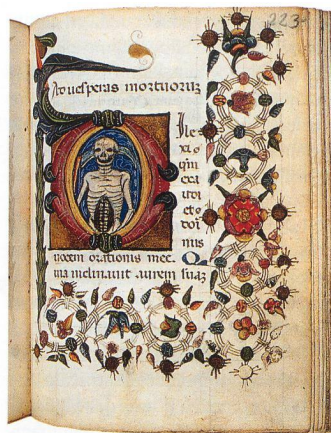 223
Ad uesperas mortuoruz
Ile
xi
qm
exa
et do
nus Q
uocem orationis mee.
ia inclinauit aurem suaz